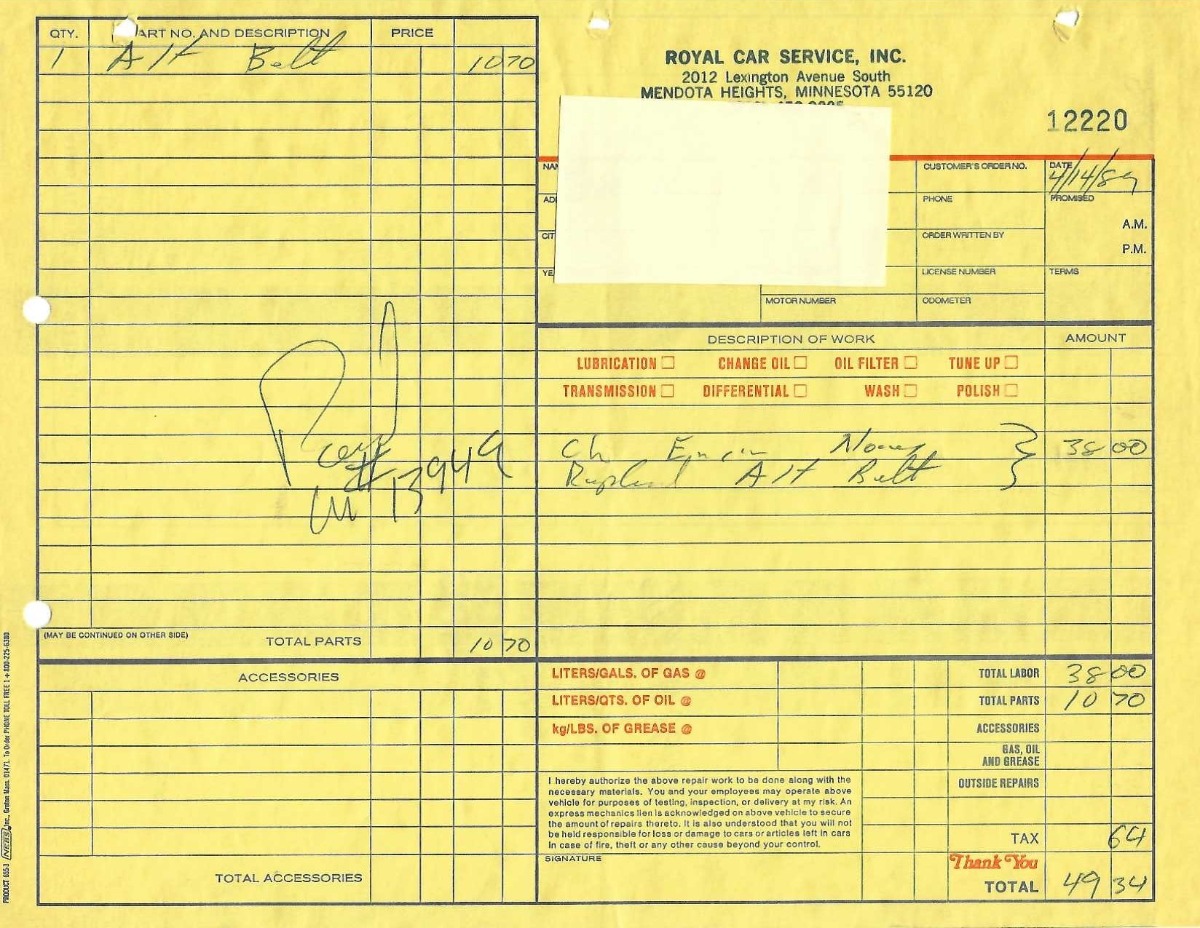 QTY. PART NO. AND DESCRIPTION PRICE
1 Alt Belt 10 70
(MAY BE CONTINUED ON OTHER SIDE) TOTAL PARTS 10 70
ACCESSORIES
TOTAL ACCESSORIES
ROYAL CAR SERVICE, INC.
2012 Lexington Avenue South
MENDOTA HEIGHTS, MINNESOTA 55120
12220
CUSTOMER'S ORDER NO. DATE 4/14/89
PHONE PROMISED
A.M.
ORDER WRITTEN BY
P.M.
LICENSE NUMBER TERMS
MOTOR NUMBER ODOMETER
DESCRIPTION OF WORK AMOUNT
LUBRICATION CHANGE OIL OIL FILTER TUNE UP
TRANSMISSION DIFFERENTIAL WASH POLISH
Ch 38 00
Alt Belt
LITERS/GALS. OF GAS @ TOTAL LABOR 38 00
LITERS/QTS. OF OIL @ TOTAL PARTS 10 70
kg/LBS. OF GREASE @ ACCESSORIES
GAS, OIL
AND GREASE
OUTSIDE REPAIRS
I hereby authorize the above repair work to be done along with the
necessary materials. You and your employees may operate above
vehicle for purposes of testing, inspection, or delivery at my risk. An
express mechanics lien is acknowledged on above vehicle to secure
the amount of repairs thereto. It is also understood that you will not
be held responsible for loss or damage to cars or articles left in cars
in case of fire, theft or any other cause beyond your control.
SIGNATURE
TAX 64
Thank You
TOTAL 49 34
PRODUCT 655-3 NEBS Inc., Groton Mass. 01471. To Order PHONE TOLL FREE 1 + 800-225-6380